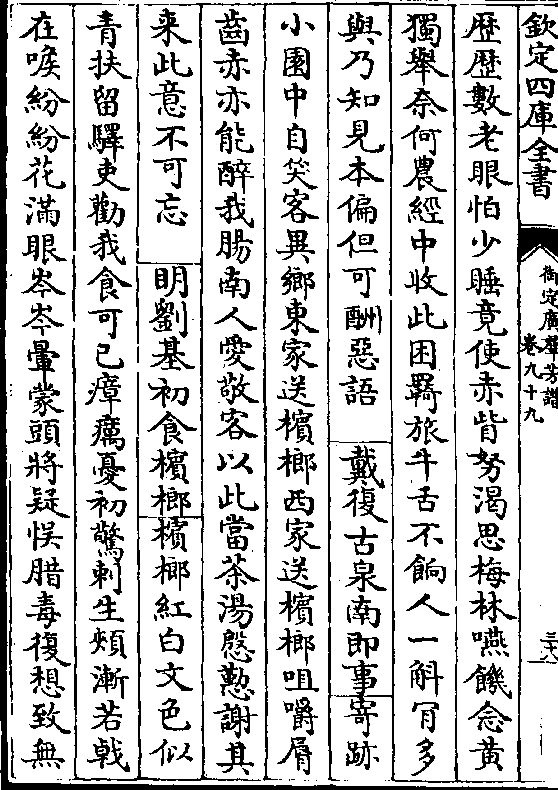 欽定四庫全書
御定廣羣芳譜
卷九十九
歷歷數老眼怕少睡竟使赤眥努渴思梅林嚥饑念黄
獨舉奈何農經中收此困羇旅牛舌不餉人一斛肎多
與乃知見本偏但可酬惡語 戴復古泉南即事寄跡
小園中自笑客異鄉東家送檳榔西家送檳榔咀嚼脣
齒赤亦能醉我腸南人愛敬客以此當茶湯慇懃謝其
来此意不可忘 明劉基初食檳榔檳榔紅白文色似
青扶留驛吏勸我食可已瘴癘憂初驚刺生頰漸若戟
在喉紛紛花滿眼岑岑暈蒙頭將疑悮腊毒復想致無